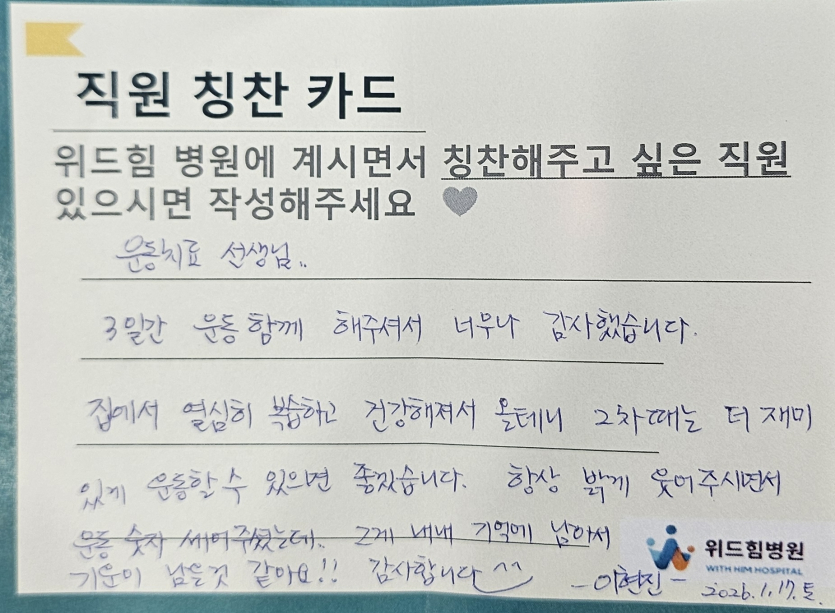 직원 칭찬 카드
위드힘 병원에 계시면서 칭찬해주고 싶은 직원
있으시면 작성해주세요 ♥
운동치료 선생님..
3일간 운동 함께 해주셔서 너무나 감사했습니다.
집에서 열심히 복습하고 건강해져서 올테니 2차때는 더 재미
있게 운동할 수 있으면 좋겠습니다. 항상 밝게 웃어주시면서
운동 숫자 세어주셨는데.. 그게 내내 기억에 남아서
기운이 남을것 같아요!! 감사합니다^^ -이현진-
위드힘병원
WITH HIM HOSPITAL
2026.1.17.토.